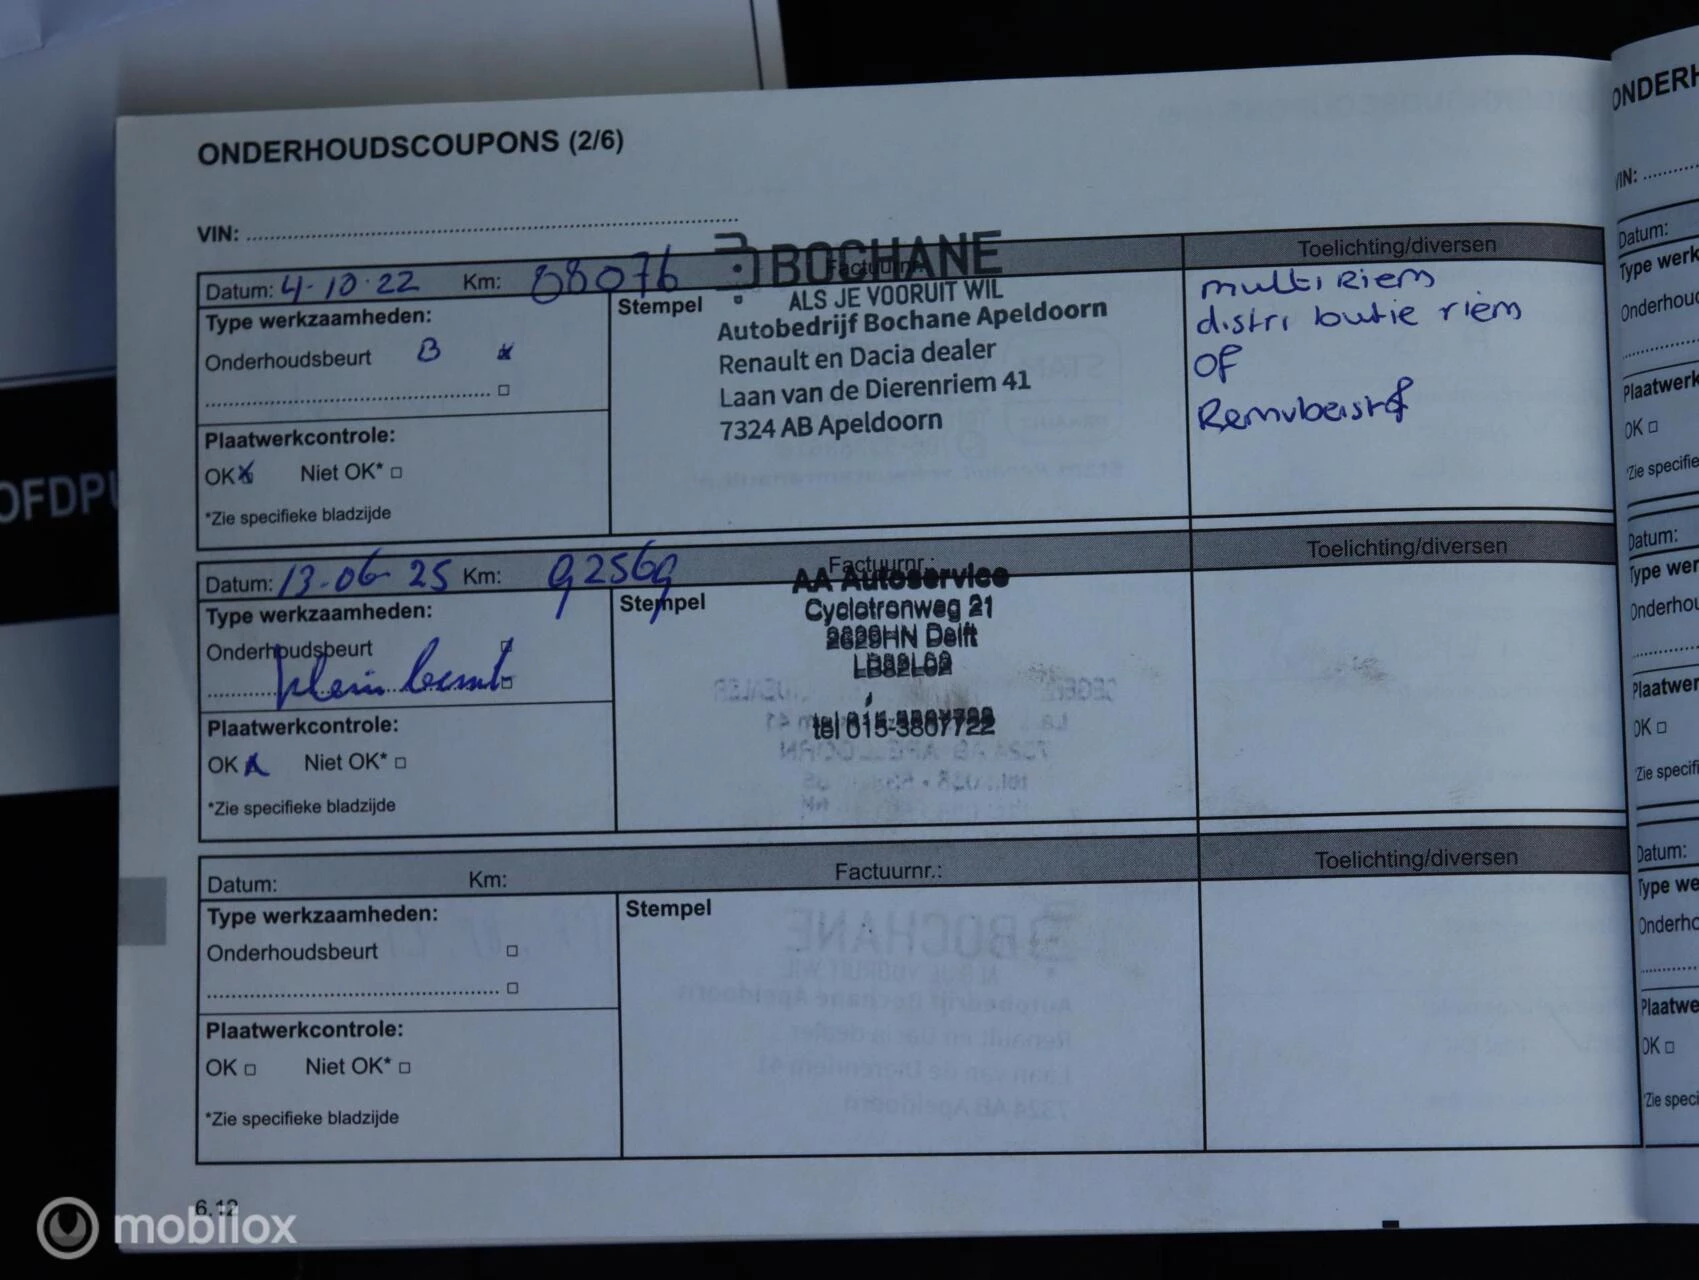 ONDERHOUDSCOUPONS (2/6)
VIN:
Datum: 4-10-22 Km: 88076 Factuurnr.: Toelichting/diversen
BOCHANE
ALS JE VOORUIT WIL
Autobedrijf Bochane Apeldoorn
Renault en Dacia dealer
Laan van de Dierenriem 41
7324 AB Apeldoorn
Type werkzaamheden:
Onderhoudsbeurt B
Stempel
multi Riem
distri butie riem
of
Plaatwerkcontrole:
OK Niet OK*
*Zie specifieke bladzijde
Datum: 13-06-25 Km: 92569 Factuurnr.: Toelichting/diversen
Type werkzaamheden:
Onderhoudsbeurt
klein beurt
Stempel
AA Autoservice
Cyclotronweg 21
HN Delft
tel 015-3807722
Plaatwerkcontrole:
OK Niet OK*
*Zie specifieke bladzijde
Datum: Km: Factuurnr.: Toelichting/diversen
Type werkzaamheden:
Onderhoudsbeurt
Stempel
Plaatwerkcontrole:
OK Niet OK*
*Zie specifieke bladzijde
6.12
mobilox
OFDPU
ONDERH
VIN:
Datum:
Type werk
Onderhou
Plaatwerk
OK
*Zie specifie
Datum:
Type wer
Onderhou
Plaatwer
OK
*Zie specifi
Datum:
Type we
Onderho
Plaatwe
OK
*Zie speci